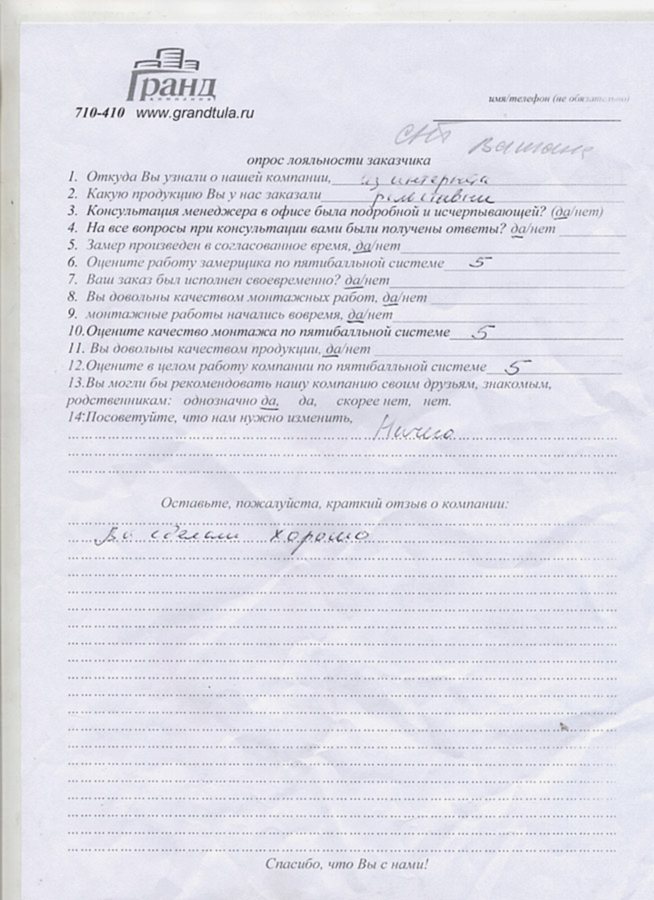 Гранд
компания
710-410 www.grandtula.ru
имя/телефон (не обязательно)
СНТ
опрос лояльности заказчика
1. Откуда Вы узнали о нашей компании, из интернета
2. Какую продукцию Вы у нас заказали рольставни
3. Консультация менеджера в офисе была подробной и исчерпывающей? (да/нет)
4. На все вопросы при консультации вами были получены ответы? да/нет
5. Замер произведен в согласованное время, да/нет
6. Оцените работу замерщика по пятибалльной системе 5
7. Ваш заказ был исполнен своевременно? да/нет
8. Вы довольны качеством монтажных работ, да/нет
9. монтажные работы начались вовремя, да/нет
10.Оцените качество монтажа по пятибалльной системе 5
11. Вы довольны качеством продукции, да/нет
12.Оцените в целом работу компании по пятибалльной системе 5
13.Вы могли бы рекомендовать нашу компанию своим друзьям, знакомым,
родственникам: однозначно да, да, скорее нет, нет.
14:Посоветуйте, что нам нужно изменить,
Ничего
Оставьте, пожалуйста, краткий отзыв о компании:
сделали хорошо
Спасибо, что Вы с нами!